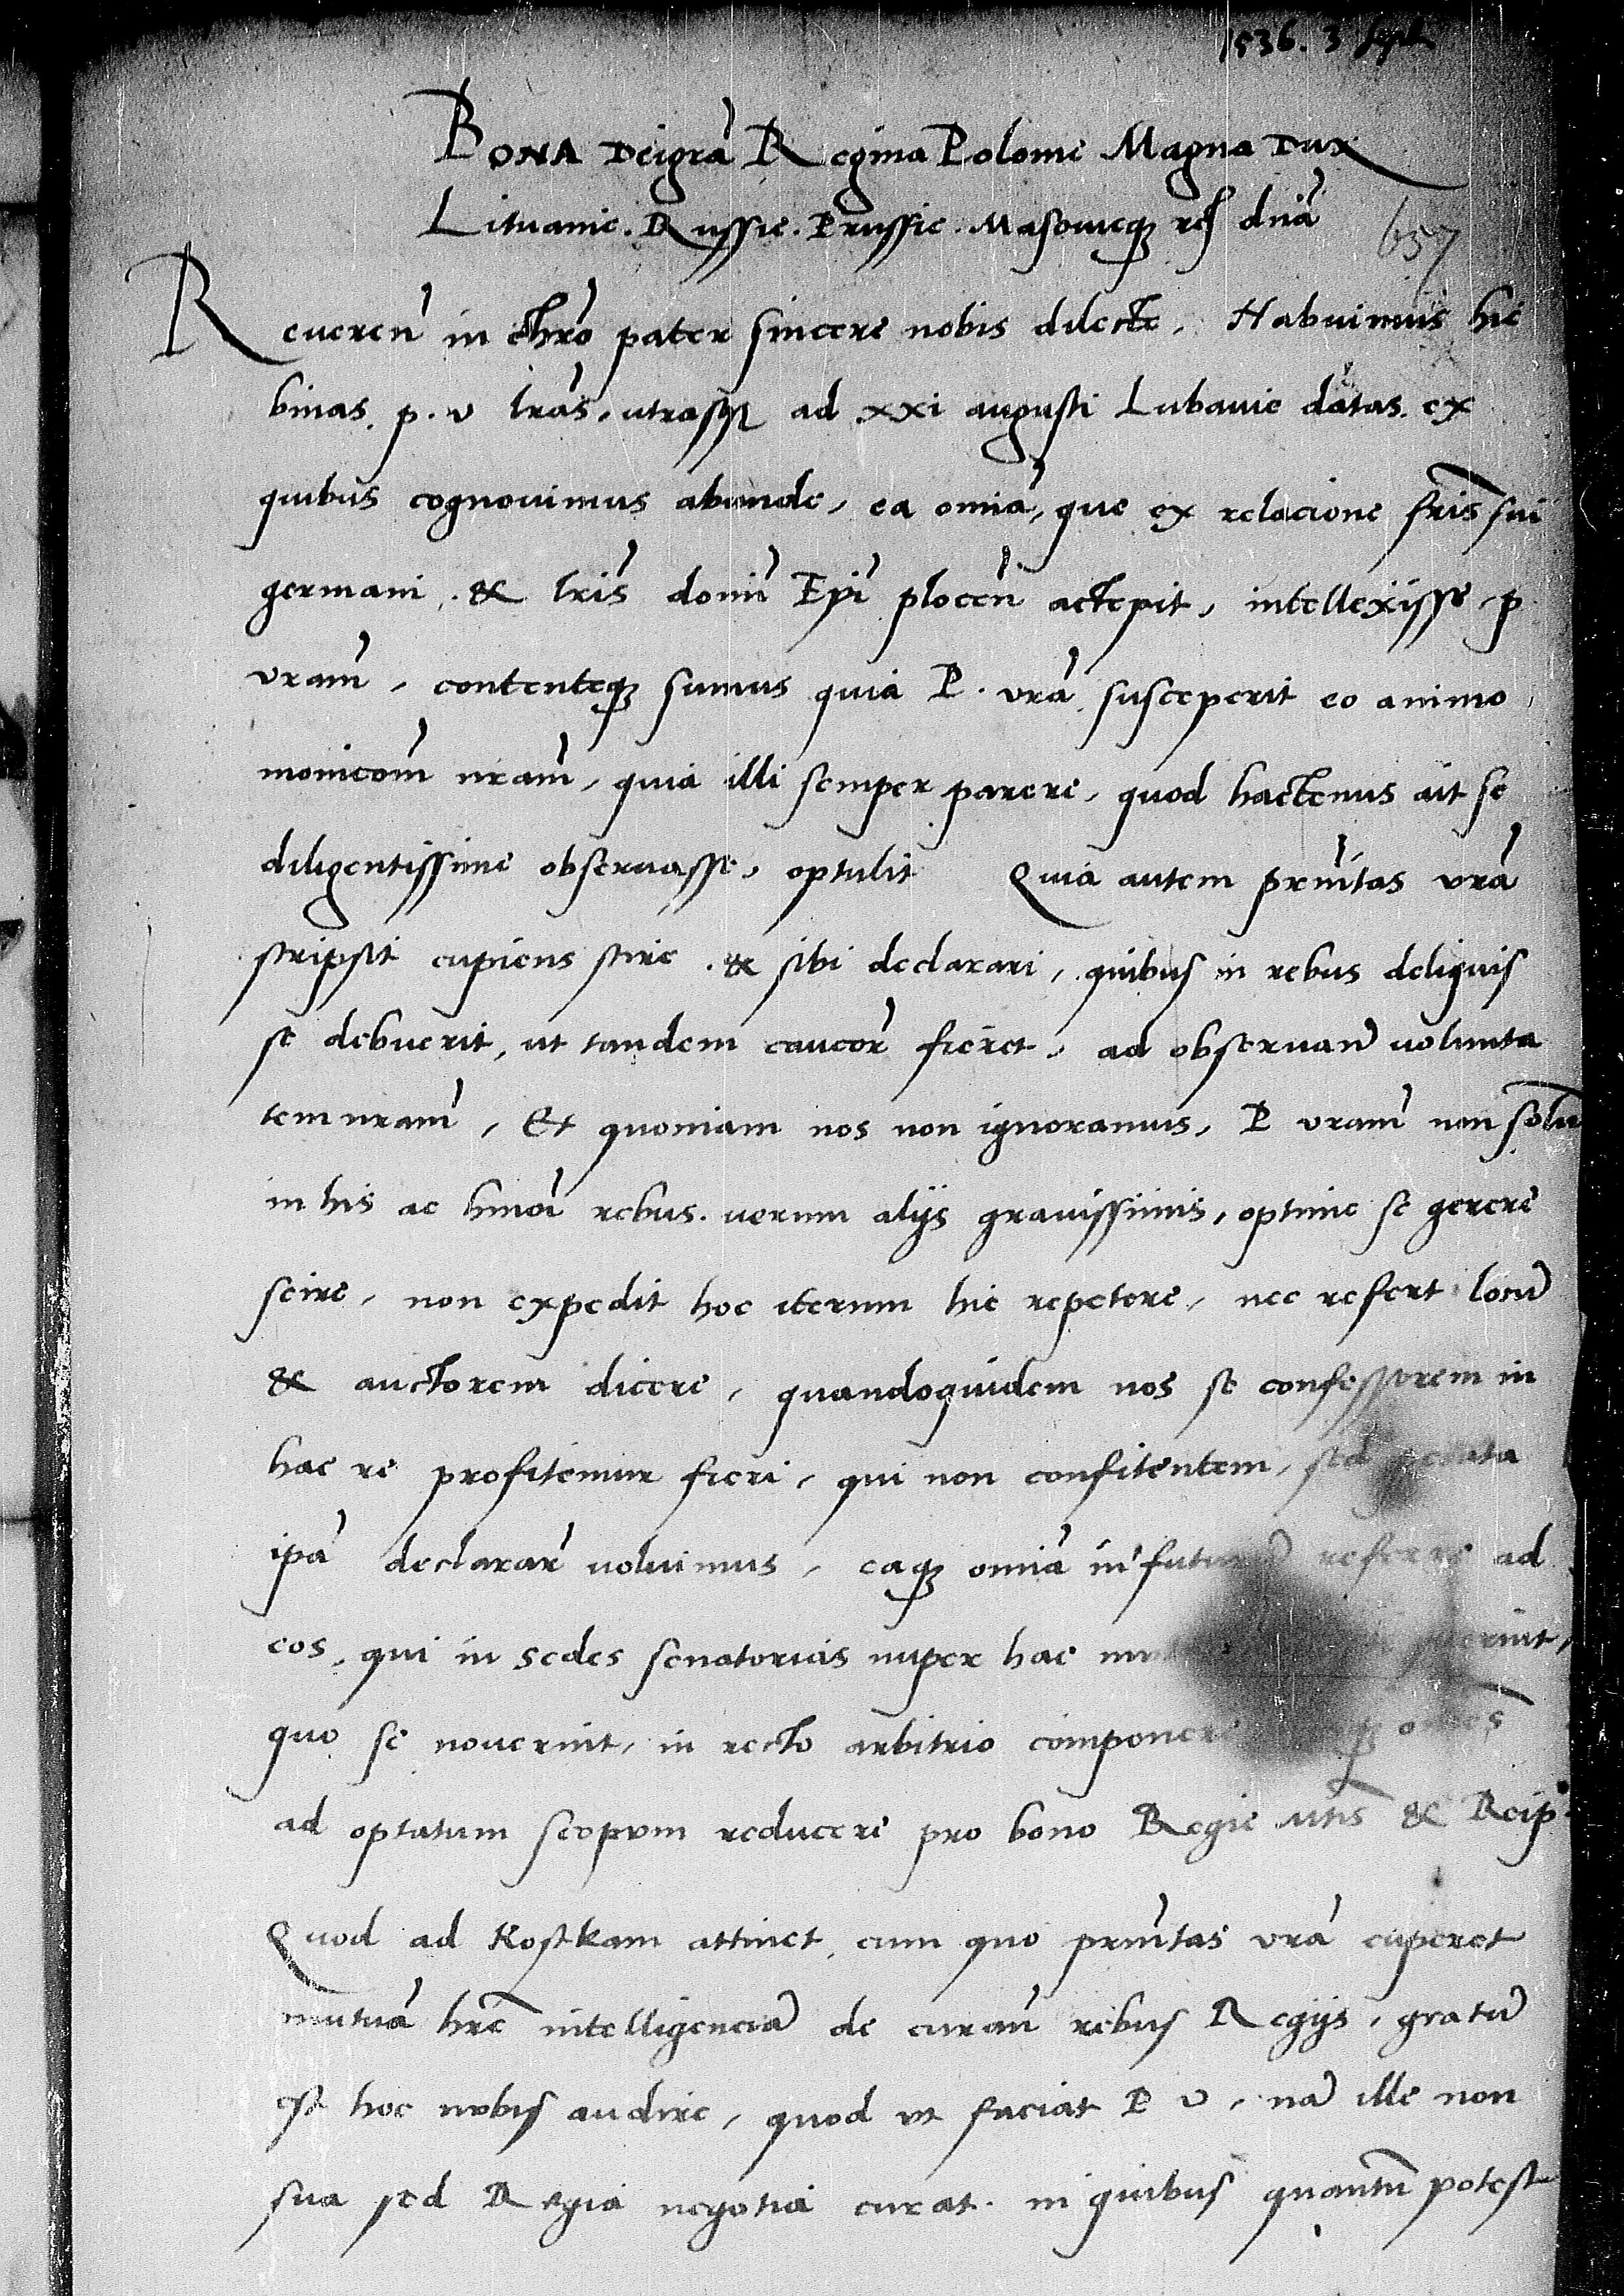 1536. 3 Sept
BONA Deigrã Regina Polonie Magna Dux
Lituanie. Russie. Prussie. Masouieq; rĕ dnã
657
Reueren̄ in chr̄o pater sincere nobis dilecte. Habuimus hic
binas p. v lr̄as, utrasq; ad xxi augusti Lubauie datas. ex
quibus cognouimus abunde, ea omīa, que ex relacione fr̄is sui
germani . & lr̄is domī Epī plocen̄ accepit, intellexisse p
vram̄, contenteq; sumus quia P. vr̄a susceperit eo animo
monicom̄ nram̄, quia illi semper parere, quod hactenus ait se
diligentissime obseruasse, optulit Quia autem prnītas vr̄a
scripsit cupiens scire . & sibi declarari, quibus in rebus deliquis
se debuerit, ut tandem caucor̄ fieret, ad obseruan̄ uolunta
tem nram̄, Et quoniam nos non ignoramus, P vram̄ non solū
in his ac hmōi rebus. uerum alijs grauissimis, optime se gerere
scire, non expedit hoc iterum hic repetere, nec refert locū
& auctorem dicere, quandoquidem nos se confessorem in
hac re profitemur fieri, qui non confitentem, sed
ip̄a declarar̄ uoluimus, eaq; omīa in futurū referre ad
eos, qui in sedes senatorias nuper hac fuerint,
quo se nouerint, in recto arbitrio componere omēs
ad optatum scopum reducere pro bono Regie Mtis̄ & Reip.
Quod ad Kostkam attinet, cum quo prnītas vr̄a cuperet
mutuā hr̄e intelligenciā de curan̄ rebus Regijs, gratū
est hoc nobis audire, quod vt faciat P v, nā ille non
sua sed Regia negotia curat. in quibus quantū potest